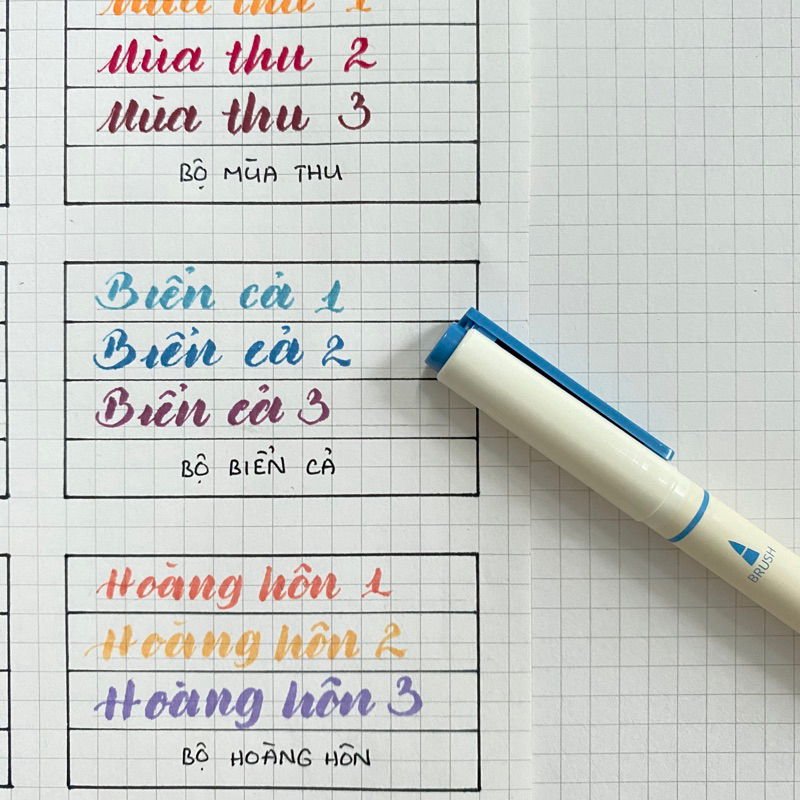 Mùa thu 1
Mùa thu 2
Mùa thu 3
BỘ MÙA THU
Biển cả 1
Biển cả 2
Biển cả 3
BỘ BIỂN CẢ
Hoàng hôn 1
Hoàng hôn 2
Hoàng hôn 3
BỘ HOÀNG HÔN
BRUSH